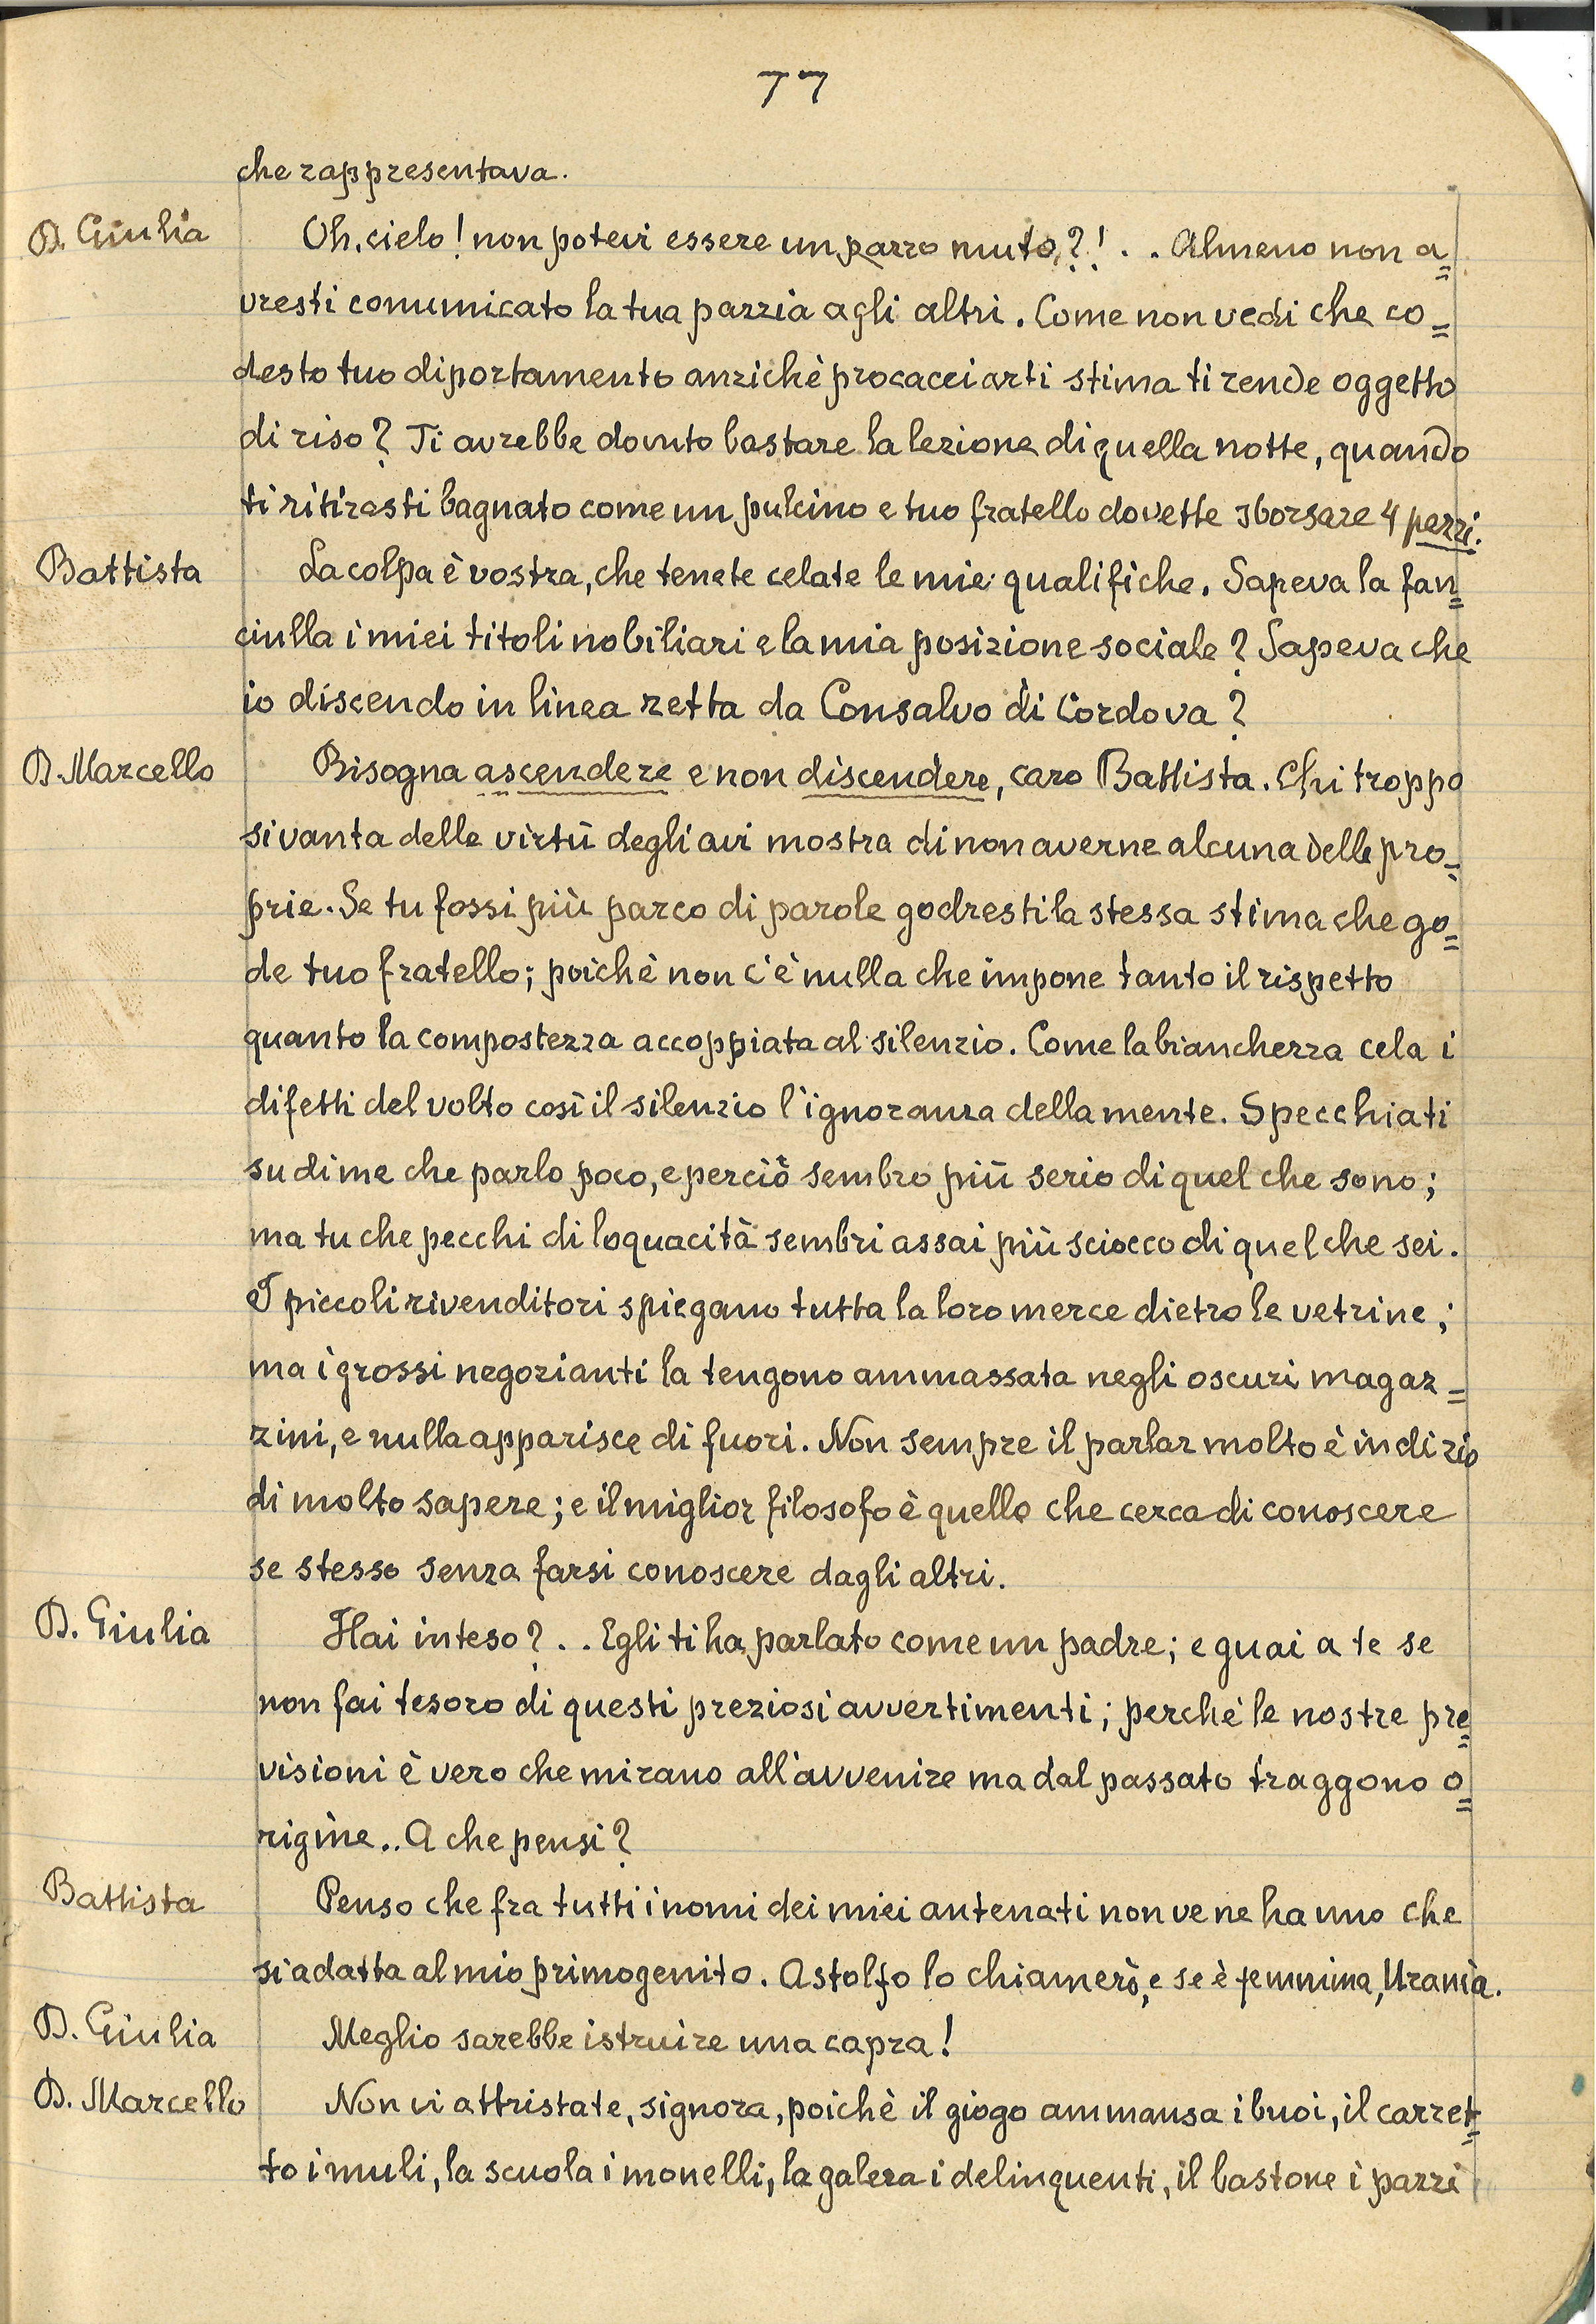 77
che rappresentava.
D. Giulia Oh, cielo! non potevi essere un pazzo muto?!.. Almeno non a=
vresti comunicato la tua pazzia agli altri. Come non vedi che co=
desto tuo diportamento anzichè procacciarti stima ti rende oggetto
di riso? Ti avrebbe dovuto bastare la lezione di quella notte, quando
ti ritirasti bagnato come un pulcino e tuo fratello dovette sborsare 4 pezzi.
Battista La colpa è vostra, che tenete celate le mie qualifiche. Sapeva la fan=
ciulla i miei titoli nobiliari e la mia posizione sociale? Sapeva che
io discendo in linea retta da Consalvo di Cordova?
D. Marcello Bisogna ascendere e non discendere, caro Battista. Chi troppo
si vanta delle virtù degli avi mostra di non averne alcuna delle pro=
prie. Se tu fossi più parco di parole godresti la stessa stima che go=
de tuo fratello; poichè non c'è nulla che impone tanto il rispetto
quanto la compostezza accoppiata al silenzio. Come la bianchezza cela i
difetti del volto così il silenzio l'ignoranza della mente. Specchiati
su di me che parlo poco, e perciò sembro più serio di quel che sono;
ma tu che pecchi di loquacità sembri assai più sciocco di quel che sei.
I piccoli rivenditori spiegano tutta la loro merce dietro le vetrine;
ma i grossi negozianti la tengono ammassata negli oscuri magaz=
zini, e nulla apparisce di fuori. Non sempre il parlar molto è indizio
di molto sapere; e il miglior filosofo è quello che cerca di conoscere
se stesso senza farsi conoscere dagli altri.
D. Giulia Hai inteso?.. Egli ti ha parlato come un padre; e guai a te se
non fai tesoro di questi preziosi avvertimenti; perchè le nostre pre=
visioni è vero che mirano all'avvenire ma dal passato traggono o=
rigine.. A che pensi?
Battista Penso che fra tutti i nomi dei miei antenati non ve ne ha uno che
si adatta al mio primogenito. Astolfo lo chiamerò, e se è femmina, Urania.
D. Giulia Meglio sarebbe istruire una capra!
D. Marcello Non vi attristate, signora, poichè il giogo ammansa i buoi, il carret=
to i muli, la scuola i monelli, la galera i delinquenti, il bastone i pazzi